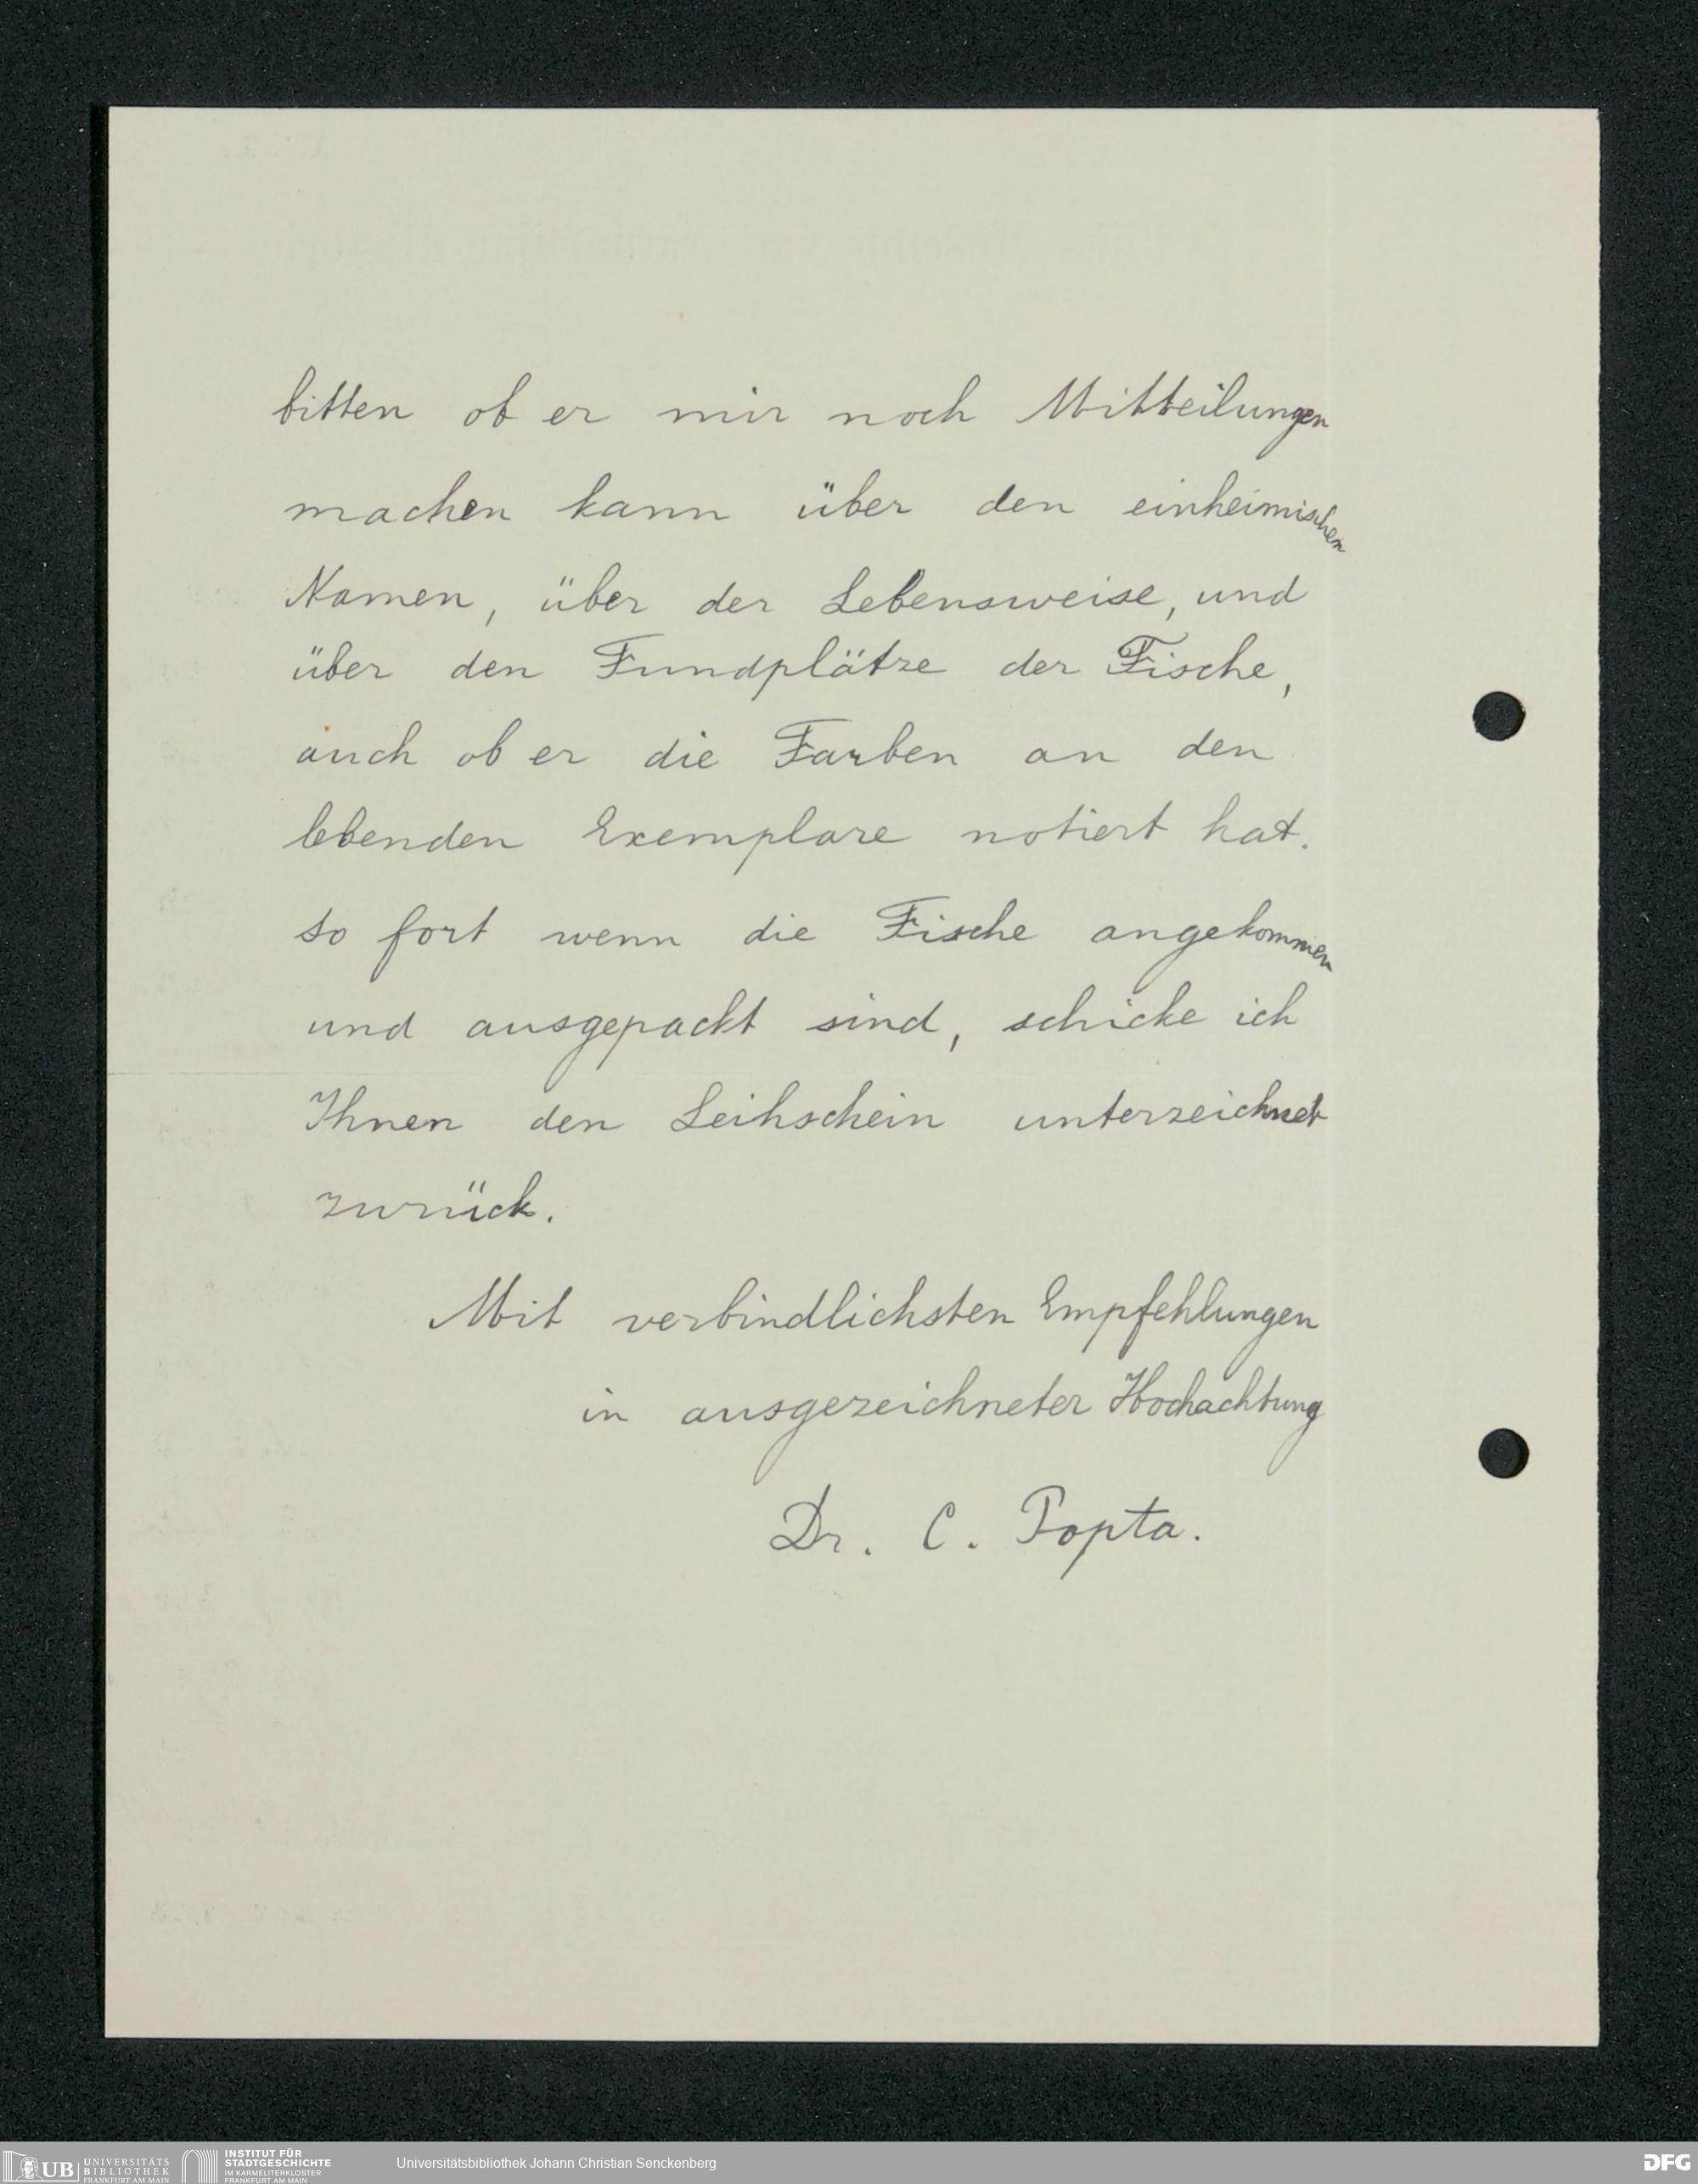 bitten ob er mir noch Mitteilungen
machen kann über den einheimischen
Namen, über der Lebensweise, und
über den Fundplätze der Fische,
auch ob er die Farben an den
lebenden Exemplare notiert hat.
So fort wenn die Fische angekommen
und ausgepackt sind, schicke ich
Ihnen den Leihschein unterzeichnet
zurück.
Mit verbindlichsten Empfehlungen
in ausgezeichneter Hochachtung
Dr. C. Popta.
UB UNIVERSITÄTS
BIBLIOTHEK
FRANKFURT AM MAIN
INSTITUT FÜR
STADTGESCHICHTE
IM KARMELITERKLOSTER
FRANKFURT AM MAIN
Universitätsbibliothek Johann Christian Senckenberg
DFG